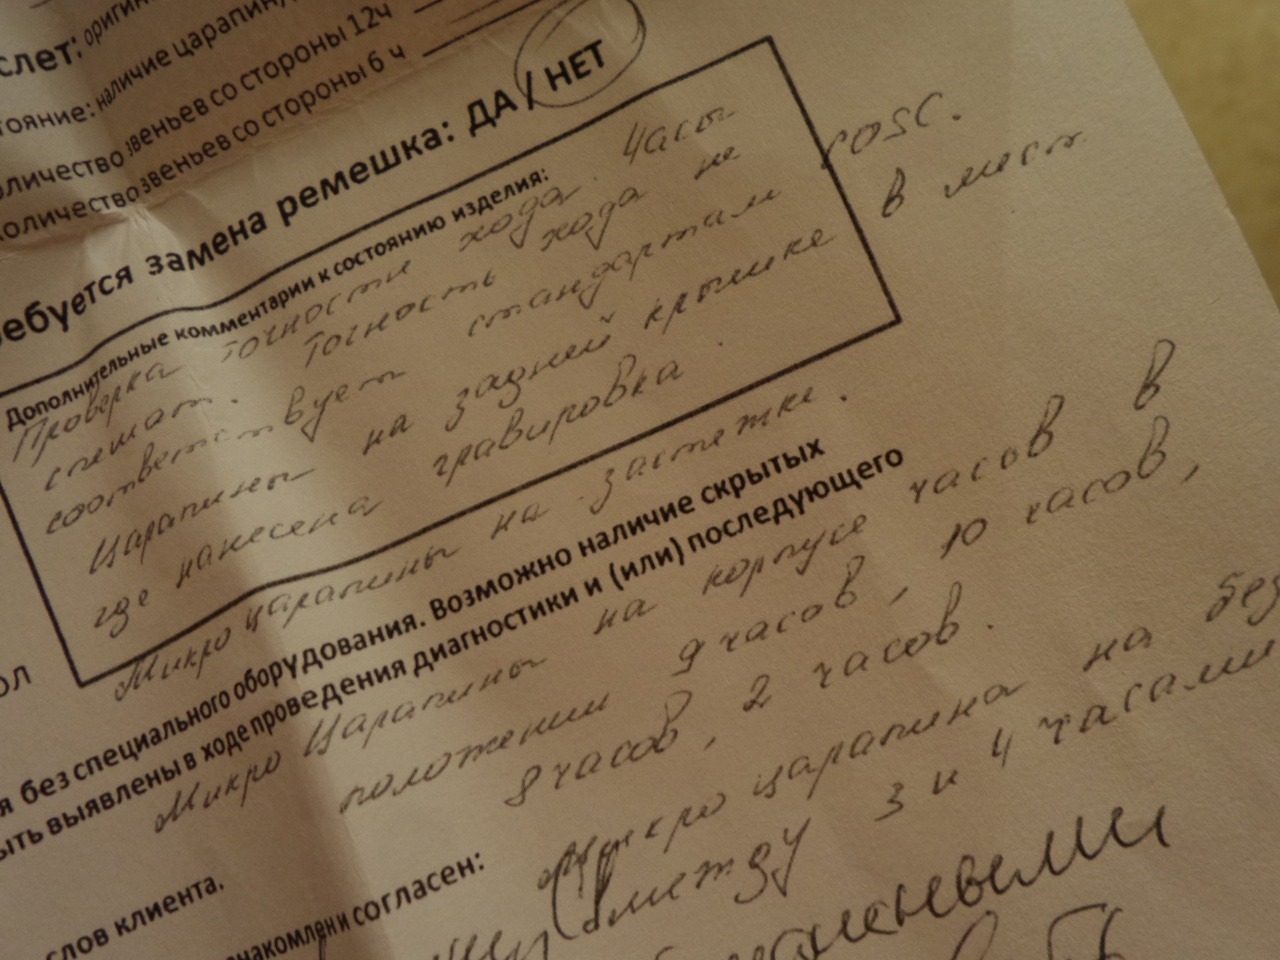 слет: оригин
тояние: наличие царапин,
оличество звеньев со стороны 12ч
количество звеньев со стороны 6 ч
ребуется замена ремешка: ДА / НЕТ
Дополнительные комментарии к состоянию изделия:
Проверка точности хода. Часы
спешат. Точность хода не
соответствует стандартам COSC.
Царапины на задней крышке в мест
где нанесена гравировка.
Микро царапины на застежке.
я без специального оборудования. Возможно наличие скрытых
ыть выявлены в ходе проведения диагностики и (или) последующего
Микро Царапины на корпусе часов в
положении 9 часов, 10 часов,
8 часов, 2 часов.
ол
Микро царапина на без
между 3 и 4 часами
слов клиента.
знакомлен и согласен: